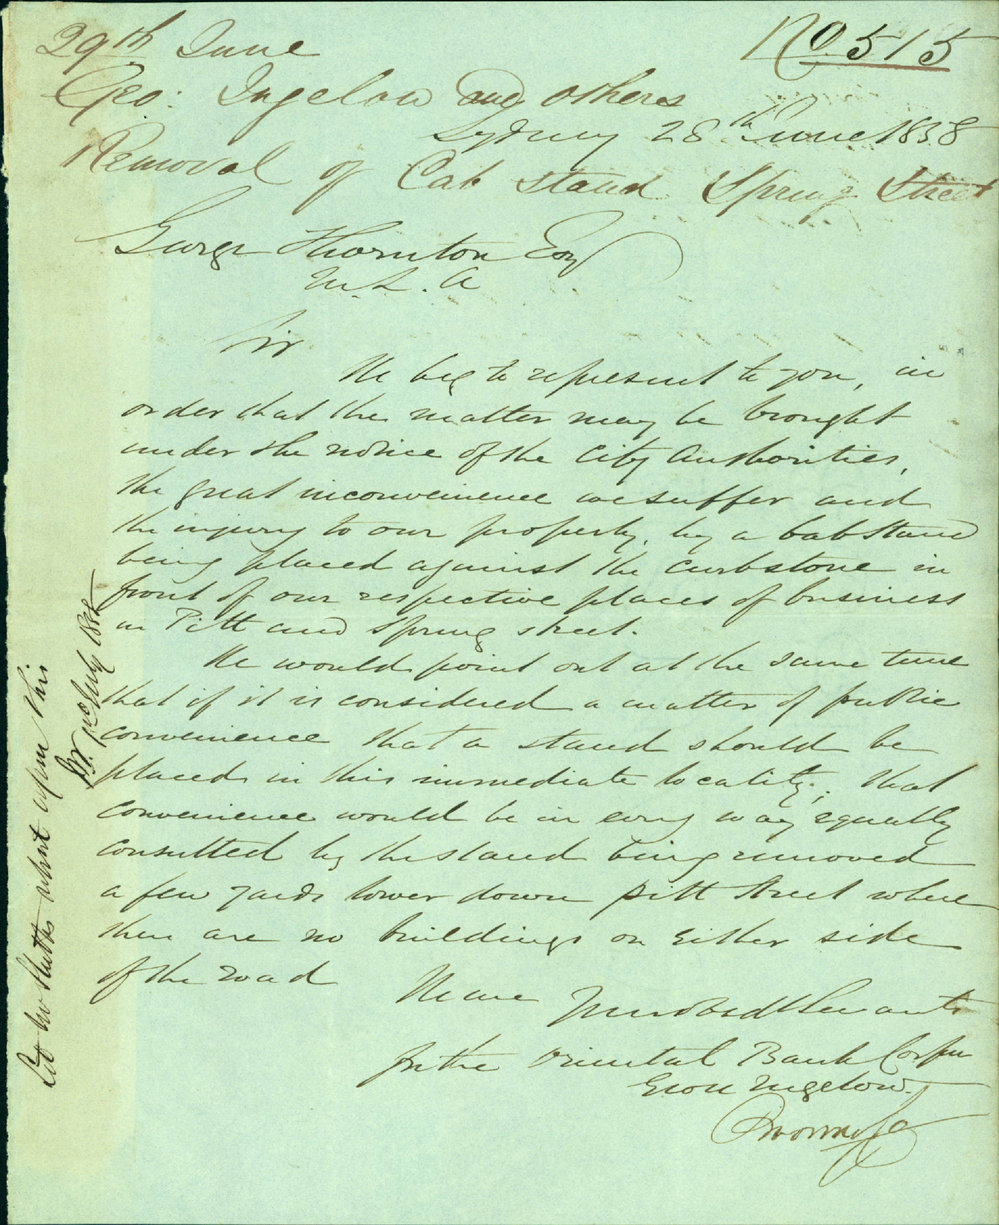 29th June
No 515
Geo: Ingelow and others
Sydney 28th June 1858
Removal of Cab stand Spring Street
George Thornton Esq
M. L. A
Sir
We beg to represent to you, in
order that the matter may be brought
under the notice of the City Authorities,
the great inconvenience we suffer and
the injury to our property, by a Cabstand
being placed against the curbstone in
front of our respective places of business
in Pitt and Spring street.
We would point out at the same time
that if it is considered a matter of public
convenience that a stand should be
placed in this immediate locality, that
convenience would be in every way equally
consulted by the stand being removed
a few yards lower down Pitt Street where
there are no buildings on either side
of the road
We are
Your Obedt Servants
for the Oriental Bank Corpn
Geo Ingelow
Let Mr report upon this
July 1858